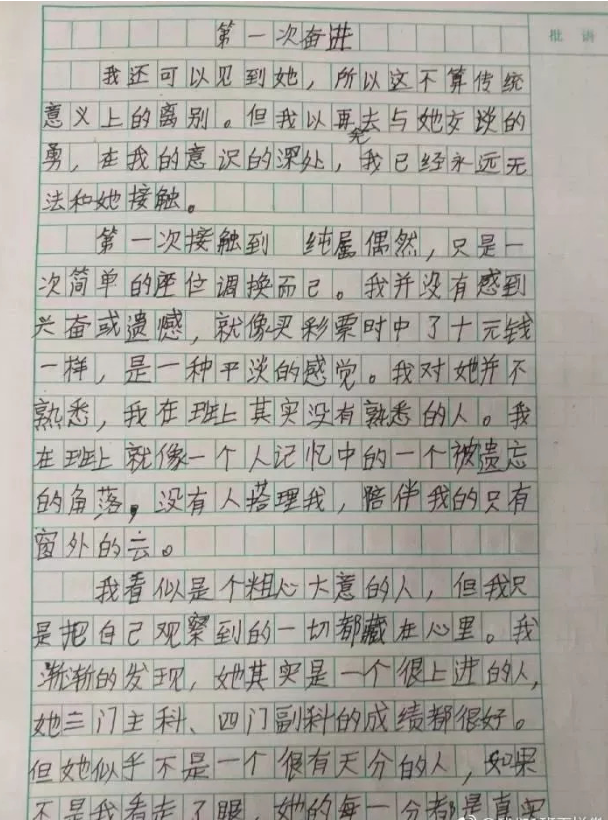 批 语
第一次奋进
我还可以见到她，所以这不算传统
意义上的离别。但我以再去与她交谈的
勇，在我的意识的深处，我已经永远无
法和她接触。
第一次接触到 纯属偶然，只是一
次简单的座位调换而已。我并没有感到
兴奋或遗憾，就像买彩票时中了十元钱
一样，是一种平淡的感觉。我对她并不
熟悉，我在班上其实没有熟悉的人。我
在班上就像一个人记忆中的一个被遗忘
的角落，没有人搭理我，陪伴我的只有
窗外的云。
我看似是个粗心大意的人，但我只
是把自己观察到的一切都藏在心里。我
渐渐的发现，她其实是一个很上进的人，
她三门主科、四门副科的成绩都很好。
但她似乎不是一个很有天分的人，如果
不是我看走了眼，她的每一分都是真实